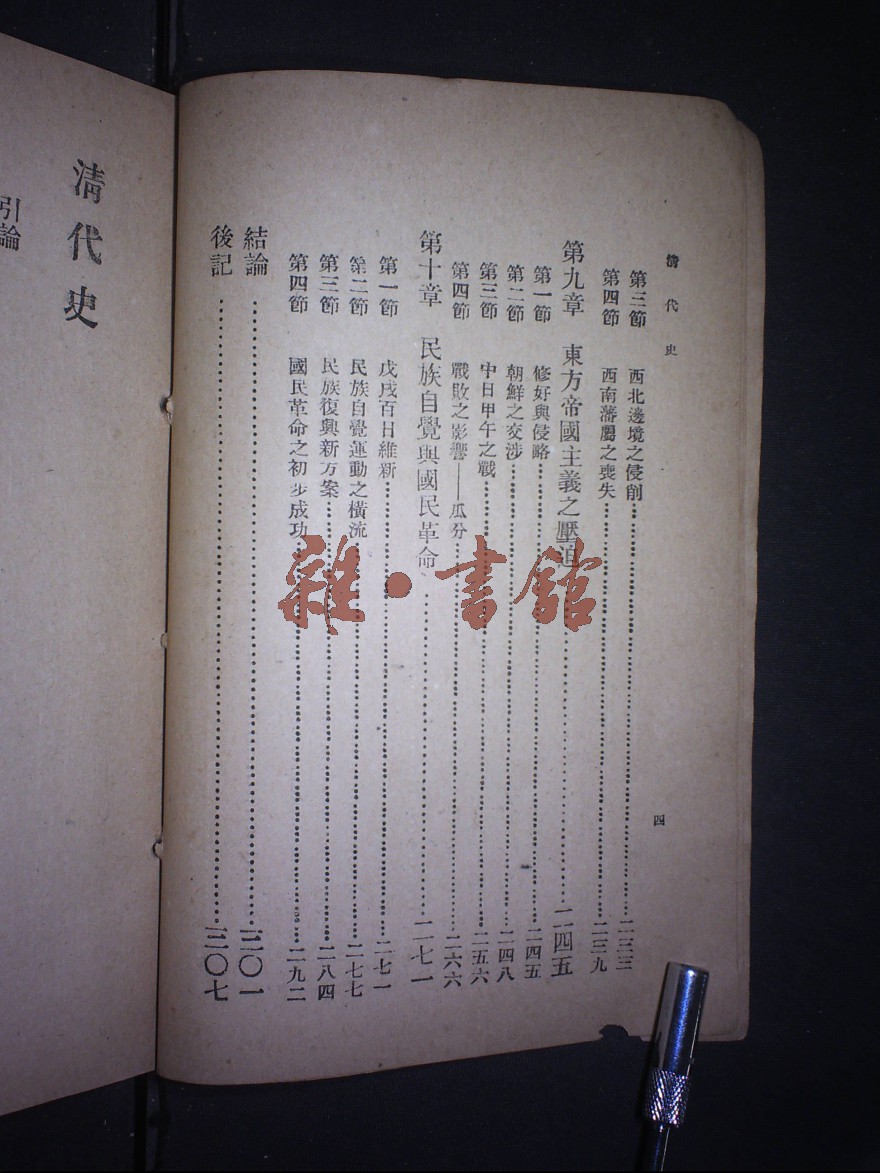 清代史
第三節 西北邊境之侵削……二三三
第四節 西南藩屬之喪失……二三九
第九章 東方帝國主義之壓迫……二四五
第一節 修好與侵略……二四五
第二節 朝鮮之交涉……二四八
第三節 中日甲午之戰……二五六
第四節 戰敗之影響——瓜分……二六六
第十章 民族自覺與國民革命……二七一
第一節 戊戌百日維新……二七一
第二節 民族自覺運動之橫流……二七七
第三節 民族復興新方案……二八四
第四節 國民革命之初步成功……二九二
結論……三〇一
後記……三〇七
四
清代史
引論
雜·書館